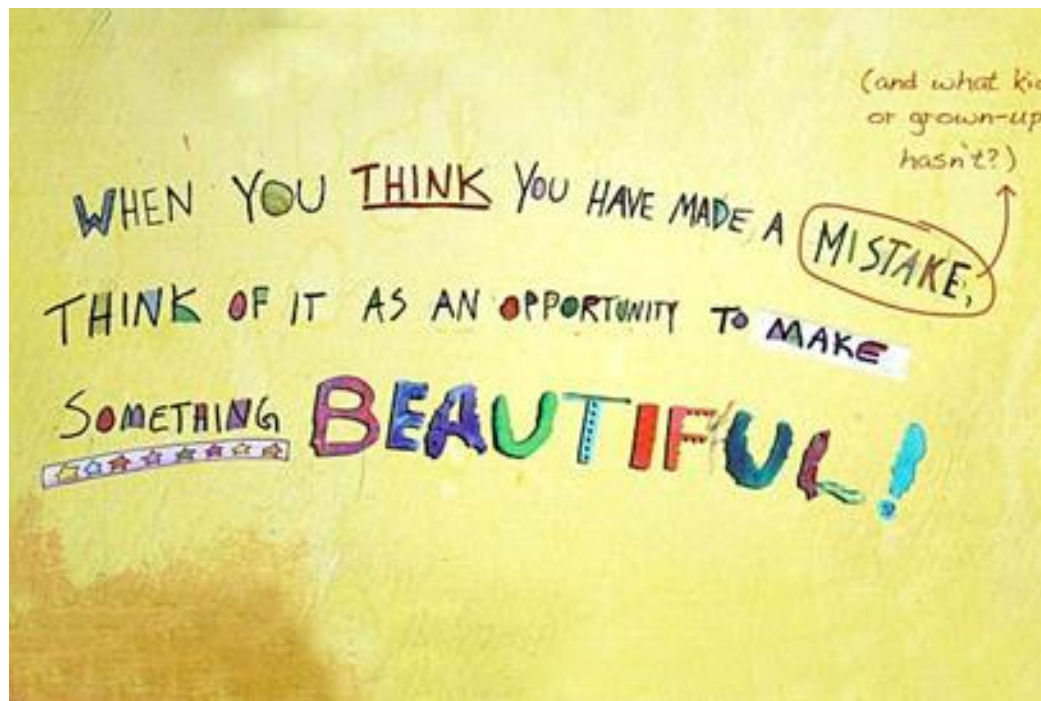 (and what
or grown-up
hasn't?)
WHEN YOU THINK YOU HAVE MADE A MISTAKE,
THINK OF IT AS AN OPPORTUNITY TO MAKE
SOMETHING BEAUTIFUL!